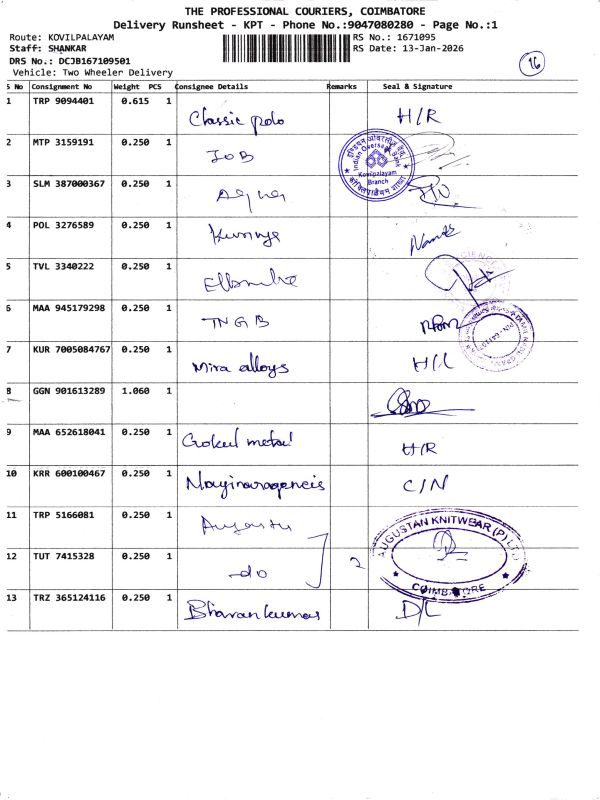 THE PROFESSIONAL COURIERS, COIMBATORE
Delivery Runsheet - KPT - Phone No.:9047080280 - Page No.:1
Route: KOVILPALAYAM RS No.: 1671095 16
Staff: SHANKAR RS Date: 13-Jan-2026
DRS No.: DCJB167109501
Vehicle: Two Wheeler Delivery
S No Consignment No Weight PCS Consignee Details Remarks Seal & Signature
1 TRP 9094401 0.615 1 Classic polo H/R
2 MTP 3159191 0.250 1 IOB
Indian Overseas Bank
Kovilpalayam
Branch
3 SLM 387000367 0.250 1
4 POL 3276589 0.250 1
5 TVL 3340222 0.250 1
6 MAA 945179298 0.250 1 TNGB
7 KUR 7005084767 0.250 1 Mira alloys H/L
8 GGN 901613289 1.060 1
9 MAA 652618041 0.250 1 Gokul metal H/R
10 KRR 600100467 0.250 1 C/N
11 TRP 5166081 0.250 1
AUGUSTAN KNITWEAR (P) LTD
12 TUT 7415328 0.250 1 do 2
COIMBATORE
13 TRZ 365124116 0.250 1 Bharan kumar D/L